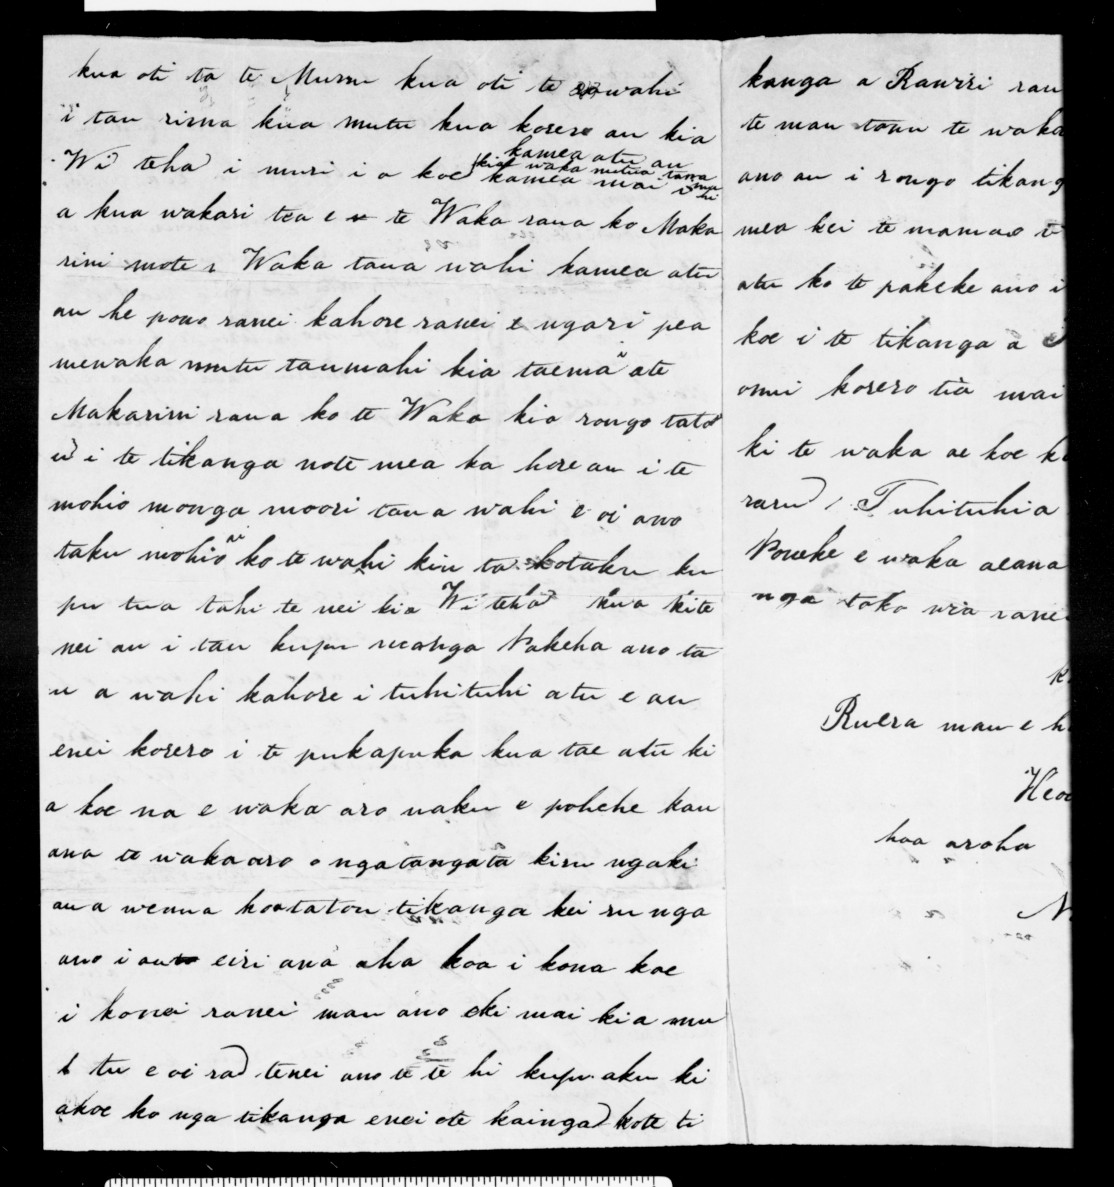 kua oti ta te Mururu kua oti te wahi
i tau rima kua mutu kua korero au kia
kamea atu au
kia waka mutua tana mahi
Wi teha i muri i a koe kamea mai i
a kua wakari tea e te Waka raua ko Maka
rini mote Waka taua wahi kamea atu
au he pono ranei kahore ranei e ngari pea
mewaka mutu taumahi kia taema ate
Makarini raua ko te Waka kia rongo tato
u i te tikanga note mea ka hore au i te
mohio monga moori taua wahi e oi ano
taku mohio ko te wahi kiu ta kotaku ku
pu tua tahi te nei kia Wi teha kua kite
nei au i tau kupu monga Pakeha ano ta
u a wahi kahore i tuhituhi atu e au
enei korero i te pukapuka kua tae atu ki
a koe na e waka aro naku e pohehe kau
ana te wakaaro o ngatangata kiru ngaki
au a wenua kootatou tikanga kei ru nga
ano i eiri ana aha koa i kona koe
i konei ranei mau ano eki mai kia mu
tu e oi ra tenei ano te te hi kupu aku ki
akoe ko nga tikanga enei ote kainga kote ti
kanga a Rawiri rau
te mau tonu te waka
ano au i rongo tikang
mea kei te mamao t
atu ko te pakeke ano i
koe i te tikanga a
omi korero tia mai
ki te waka ae koe k
raru Tuhituhia
Poneke e waka aeana
nga toko wia ranei
k
Ruera mau e h
Heo
hoa aroha
N